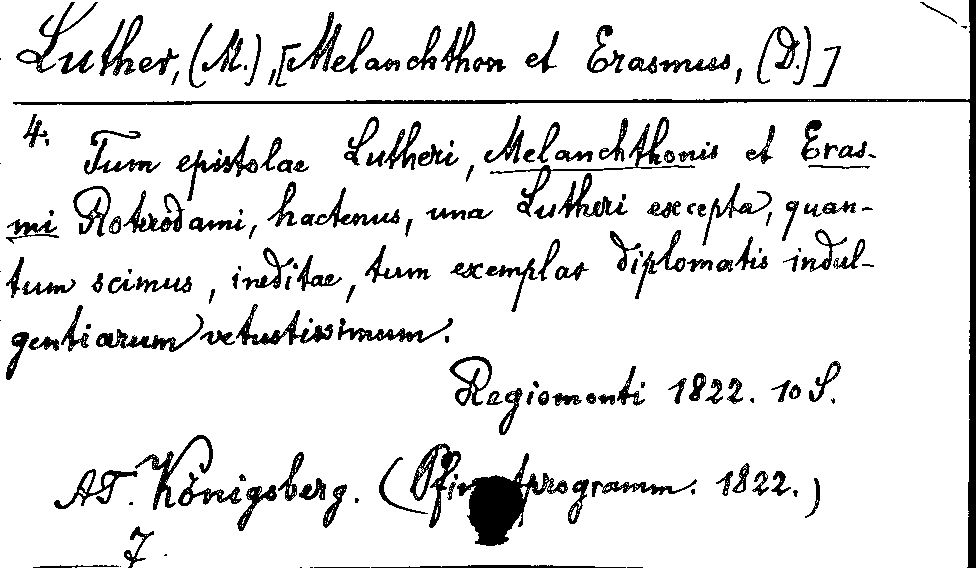 Luther, (M.), [Melanchthon et Erasmus, (D.)]
4.
Tum epistolae Lutheri, Melanchthonis et Eras-
mi Roterodami, hactenus, una Lutheri excepta, quan-
tum scimus, ineditae, tum exemplar diplomatis indul-
gentiarum vetustissimum.
Regiomonti 1822. 10 S.
AT. Königsberg. ( 1822.)
7.